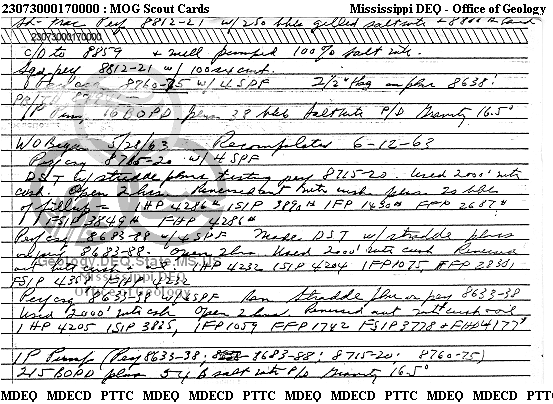 23073000170000 : MOG Scout Cards Mississippi DEQ - Office of Geology
Sd- frac Perf 8812-21 w/250 bbls gelled saltwtr + 8800 # sand
23073000170000
C/O to 8859 + well pumped 100% salt wtr.
Sqz perf 8812-21 w/100 sx cmt.
8760-75 w/4 SPF 2 1/2" tbg on pkr 8638'
IP Pump 16 BOPD plus 38 bbls saltwtr P/D Gravity 16.5°
WO Began 5/28/63 Recompleted 6-12-63
Perf csg 8715-20 w/4 SPF
DST w/straddle pkrs testing perf 8715-20. Used 2000' wtr
cush. Open 2 hrs. Reversed out wtr cush plus 20 bbls
IHP 4286# ISIP 3890# IFP 1430# FFP 2687#
FSIP 3849# FHP 4286#
Perf csg 8683-88 w/4 SPF Made DST w/straddle pkrs
8683-88. Open 2 hrs Used 2000' wtr cush Reversed
out wtr cush + IHP 4232 ISIP 4204 IFP 1075 FFP 2830,
FSIP 4354 FHP 4232
Geology.DEQ.State.MS.US
Mississippi DEQ
Office of Geology
Perf csg 8633-38 w/4 SPF Ran Straddle pkr on perf 8633-38
Used 2000' wtr cush Open 2 hrs Reversed out wtr cush + oil
IHP 4205 ISIP 3825, IFP 1059 FFP 1742 FSIP 3778 + FHP 4177#
IP Pump (Perf 8633-38; 8683-88; 8715-20; 8760-75)
215 BOPD plus 54 B salt wtr P/D Gravity 16.5°
MDEQ MDECD PTTC MDEQ MDECD PTTC MDEQ MDECD PTTC MDEQ MDECD PTT